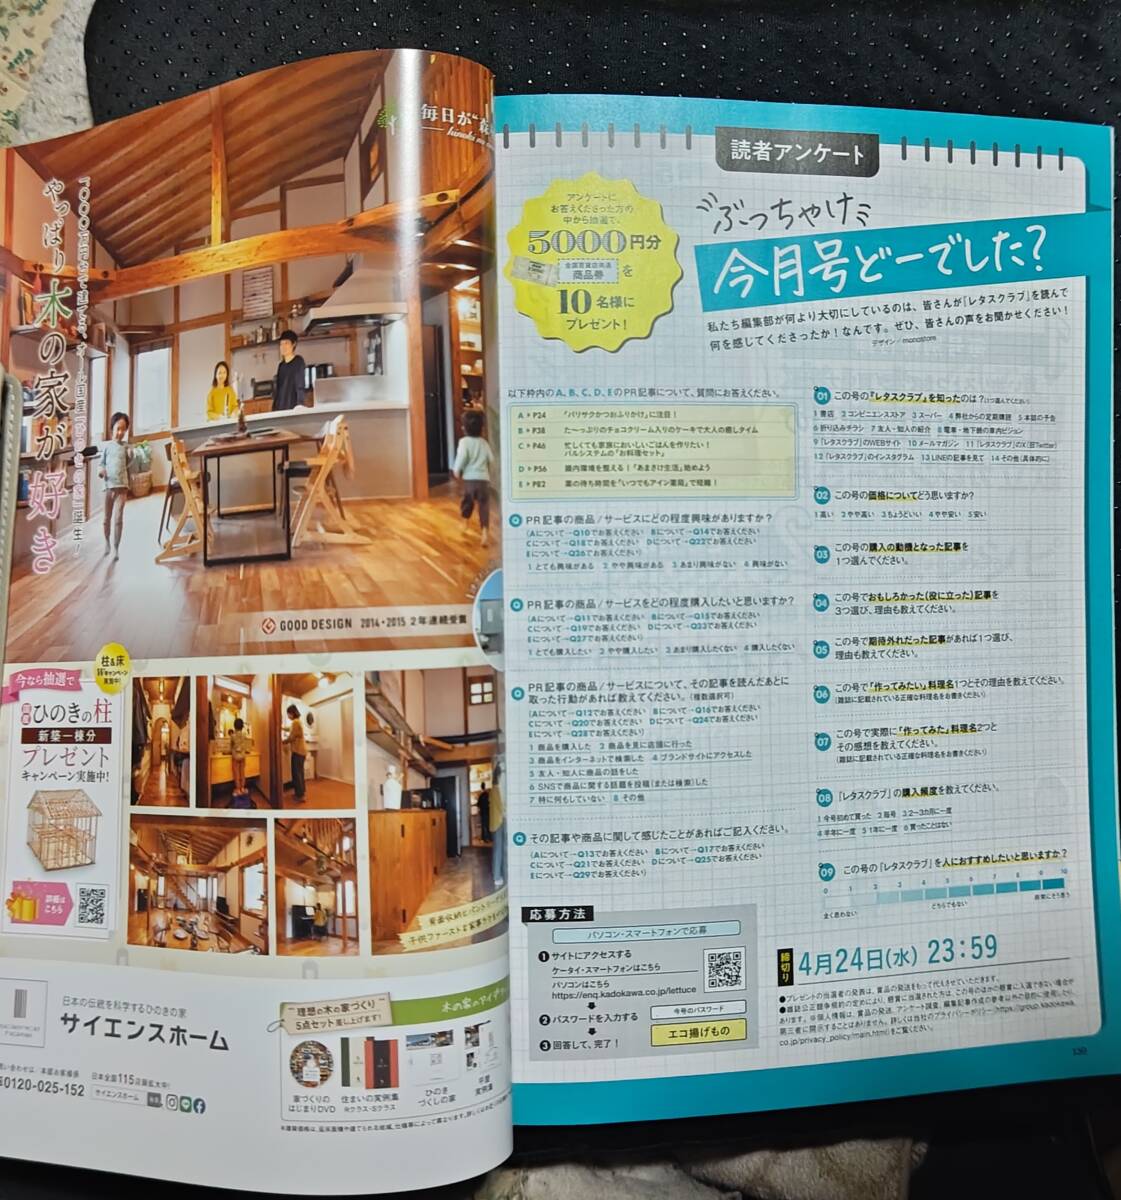 毎日が“森
hinoki no
「1000年先まで建
やっぱり木の家が好き
GOOD DESIGN 2014・2015 2年連続受賞
柱&床
キャンペーン
実施中!
今なら抽選で
国産ひのきの柱
新築一棟分
プレゼント
キャンペーン実施中!
詳細は
こちら
背面収納とパントリー
子供ファーストな家事ラク
日本の伝統を科学するひのきの家
サイエンスホーム
0120-025-152
日本全国115店舗拡大中!
サイエンスホーム
理想の木の家づくり
5点セット差し上げます!
木の家のアイデ
家づくりの
はじまりDVD
住まいの実例集
Rクラス・Sクラス
ひのき
づくしの家
平屋
実例集
読者アンケート
アンケートに
お答えくださった方の
中から抽選で、
5000円分
全国百貨店共通
商品券
を
10名様に
プレゼント!
ぶっちゃけ
今月号どーでした?
私たち編集部が何より大切にしているのは、皆さんが『レタスクラブ』を読んで
何を感じてくださったか!なんです。ぜひ、皆さんの声をお聞かせください!
デザイン/monostore
以下枠内のA、B、C、D、EのPR記事について、質問にお答えください。
A▶P24 「バリサクかつおふりかけ」に注目!
B▶P38 た〜っぷりのチョコクリーム入りのケーキで大人の癒しタイム
C▶P46 忙しくても家族においしいごはんを作りたい!
パルシステムの「お料理セット」
D▶P56 腸内環境を整える!「あまさけ生活」始めよう
E▶P82 薬の待ち時間を「いつでもアイン薬局」で短縮!
Q PR記事の商品/サービスにどの程度興味がありますか?
(Aについて→Q10でお答えください Bについて→Q14でお答えください
Cについて→Q18でお答えください Dについて→Q22でお答えください
Eについて→Q26でお答えください)
1 とても興味がある 2 やや興味がある 3 あまり興味がない 4 興味がない
Q PR記事の商品/サービスをどの程度購入したいと思いますか?
(Aについて→Q11でお答えください Bについて→Q15でお答えください
Cについて→Q19でお答えください Dについて→Q23でお答えください
Eについて→Q27でお答えください)
1 とても購入したい 2 やや購入したい 3 あまり購入したくない 4 購入したくない
Q PR記事の商品/サービスについて、その記事を読んだあとに
取った行動があれば教えてください。(複数選択可)
(Aについて→Q12でお答えください Bについて→Q16でお答えください
Cについて→Q20でお答えください Dについて→Q24でお答えください
Eについて→Q28でお答えください)
1 商品を購入した 2 商品を見に店頭に行った
3 商品をインターネットで検索した 4 ブランドサイトにアクセスした
5 友人・知人に商品の話をした
6 SNSで商品に関する話題を投稿(または検索)した
7 特に何もしていない 8 その他
Q その記事や商品に関して感じたことがあればご記入ください。
(Aについて→Q13でお答えください Bについて→Q17でお答えください
Cについて→Q21でお答えください Dについて→Q25でお答えください
Eについて→Q29でお答えください)
応募方法
パソコン・スマートフォンで応募
1 サイトにアクセスする
ケータイ・スマートフォンはこちら
パソコンはこちら
https://enq.kadokawa.co.jp/lettuce
2 パスワードを入力する
今号のパスワード
エコ揚げもの
3 回答して、完了!
01 この号の『レタスクラブ』を知ったのは?(1つ選んでください)
1 書店 2 コンビニエンスストア 3 スーパー 4 弊社からの定期購読 5 本誌の予告
6 折り込みチラシ 7 友人・知人の紹介 8 電車・地下鉄の車内ビジョン
9 『レタスクラブ』のWEBサイト 10 メールマガジン 11 『レタスクラブ』のX(旧Twitter)
12 『レタスクラブ』のインスタグラム 13 LINEの記事を見て 14 その他(具体的に)
02 この号の価格についてどう思いますか?
1 高い 2 やや高い 3 ちょうどいい 4 やや安い 5 安い
03 この号の購入の動機となった記事を
1つ選んでください。
04 この号でおもしろかった(役に立った)記事を
3つ選び、理由も教えてください。
05 この号で期待外れだった記事があれば1つ選び、
理由も教えてください。
06 この号で「作ってみたい」料理名1つとその理由を教えてください。
(雑誌に記載されている正確な料理名をお書きください)
07 この号で実際に「作ってみた」料理名2つと
その感想を教えてください。
(雑誌に記載されている正確な料理名をお書きください)
08 『レタスクラブ』の購入頻度を教えてください。
1 今号初めて買った 2 毎号 3 2〜3カ月に一度
4 半年に一度 5 1年に一度 6 買ったことはない
09 この号の『レタスクラブ』を人におすすめしたいと思いますか?
0 1 2 3 4 5 6 7 8 9 10
全く思わない どちらでもない 非常にそう思う
締切り 4月24日(水) 23:59
●プレゼントの当選者の発表は、賞品の発送をもって代えさせていただきます。
130